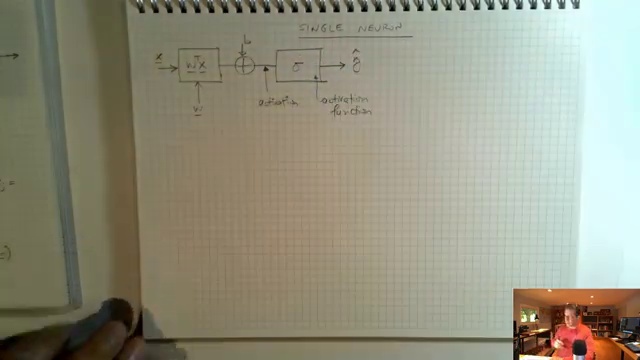 SINGLE NEURON
b
x
wᵀx
σ
ŷ
w
activation
activation
function